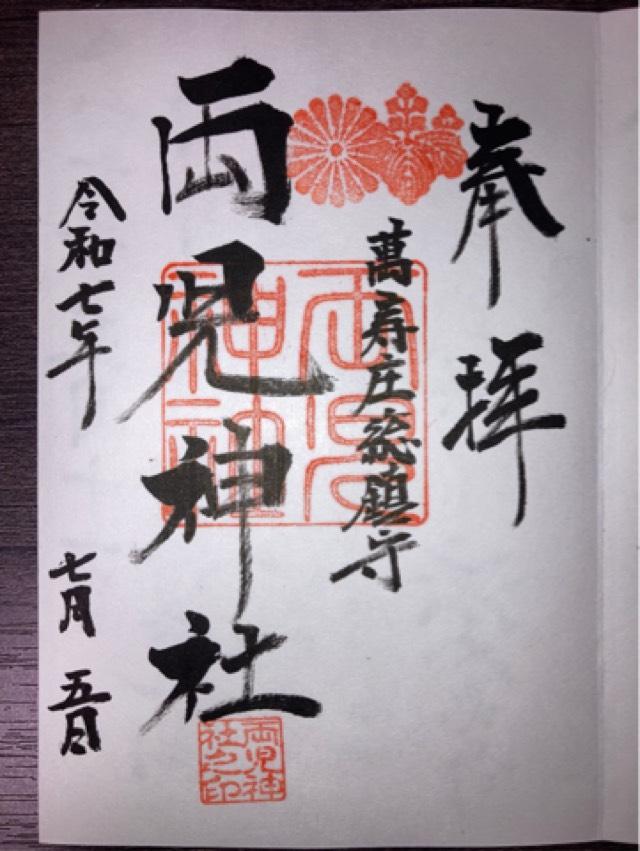 奉拝
萬寿庄総鎮守
両児神社
令和七年 七月 五日
両児神
社之印